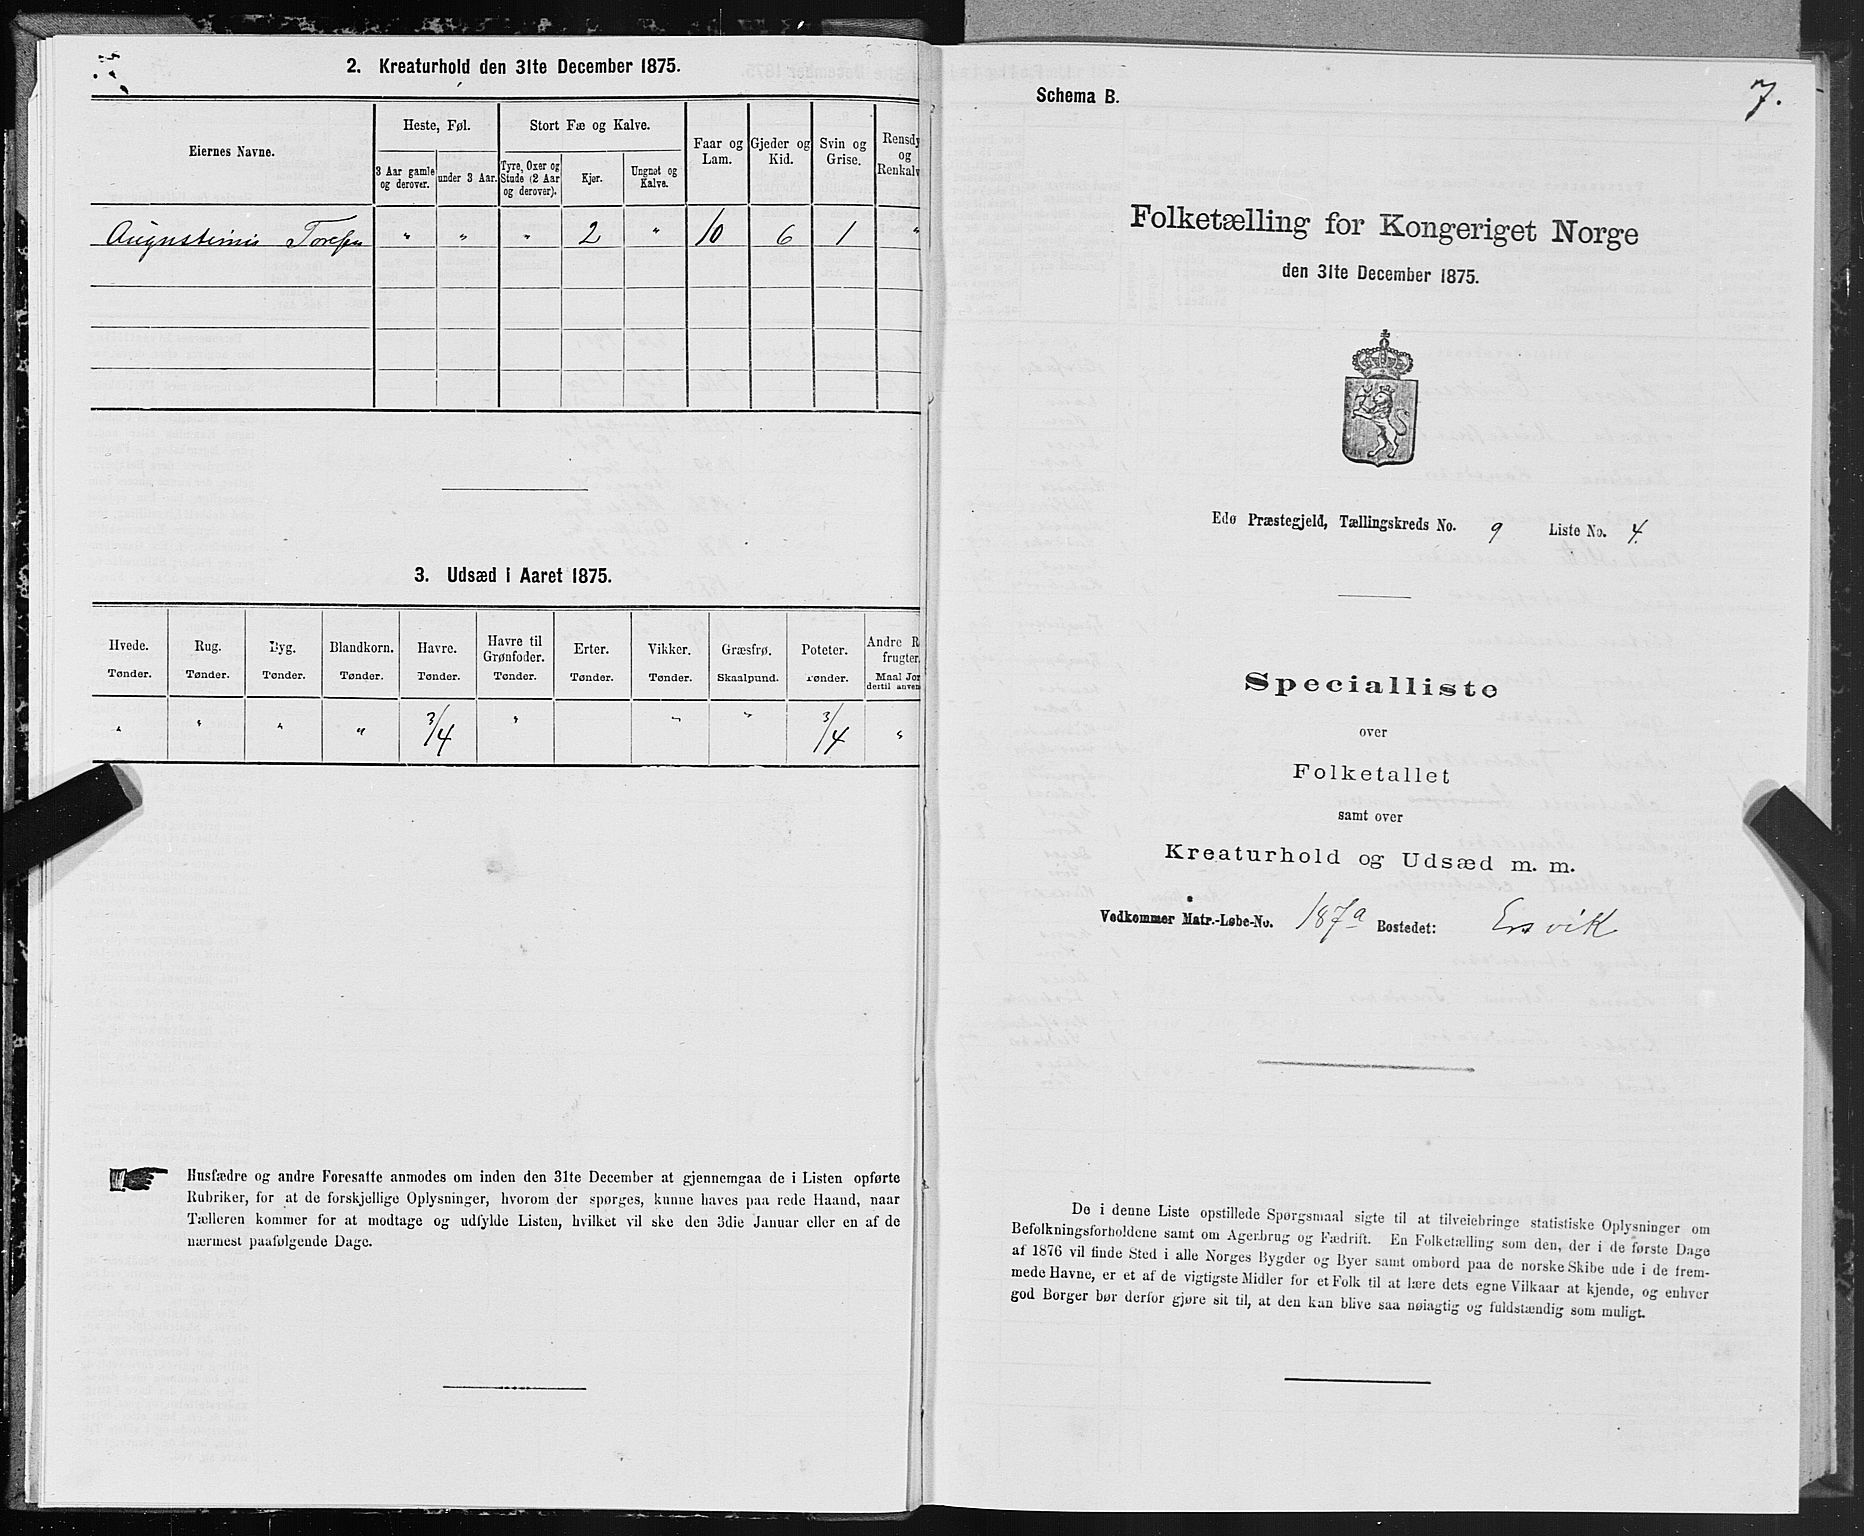 2. Kreaturhold den 31te December 1875.
Eiernes Navne.
Heste, Føl.
Stort Fæ og Kalve.
Faar og Lam.
Gjeder og Kid.
Svin og Grise.
Rensdy
og
Renkalv
3 Aar gamle og derover.
under 3 Aar.
Tyre, Oxer og Stude (2 Aar og derover).
Kjør.
Ungnøt og Kalve.
Augustinus Toresen " " " 2 " 10 6 1 "
3. Udsæd i Aaret 1875.
Hvede. Rug. Byg. Blandkorn. Havre. Havre til Grønfoder. Erter. Vikker. Græsfrø. Poteter. Andre R
frugter
Tønder. Tønder. Tønder. Tønder. Tønder. Tønder. Tønder. Tønder. Skaalpund. Tønder. Maal Jor
dertil anven
" " " " 3/4 " " " 3/4 "
Husfædre og andre Foresatte anmodes om inden den 31te December at gjennemgaa de i Listen opførte
Rubriker, for at de forskjellige Oplysninger, hvorom der spørges, kunne haves paa rede Haand, naar
Tælleren kommer for at modtage og udfylde Listen, hvilket vil ske den 3die Januar eller en af de
nærmest paafølgende Dage.
Schema B.
7.
Folketælling for Kongeriget Norge
den 31te December 1875.
Edø Præstegjeld, Tællingskreds No. 9 Liste No. 4.
Specialliste
over
Folketallet
samt over
Kreaturhold og Udsæd m. m.
Vedkommer Matr.-Løbe-No. 187a Bostedet: Ersvik
De i denne Liste opstillede Spørgsmaal sigte til at tilveiebringe statistiske Oplysninger om
Befolkningsforholdene samt om Agerbrug og Fædrift. En Folketælling som den, der i de første Dage
af 1876 vil finde Sted i alle Norges Bygder og Byer samt ombord paa de norske Skibe ude i de frem-
mede Havne, er et af de vigtigste Midler for et Folk til at lære dets egne Vilkaar at kjende, og enhver
god Borger bør derfor gjøre sit til, at den kan blive saa nøiagtig og fuldstændig som muligt.